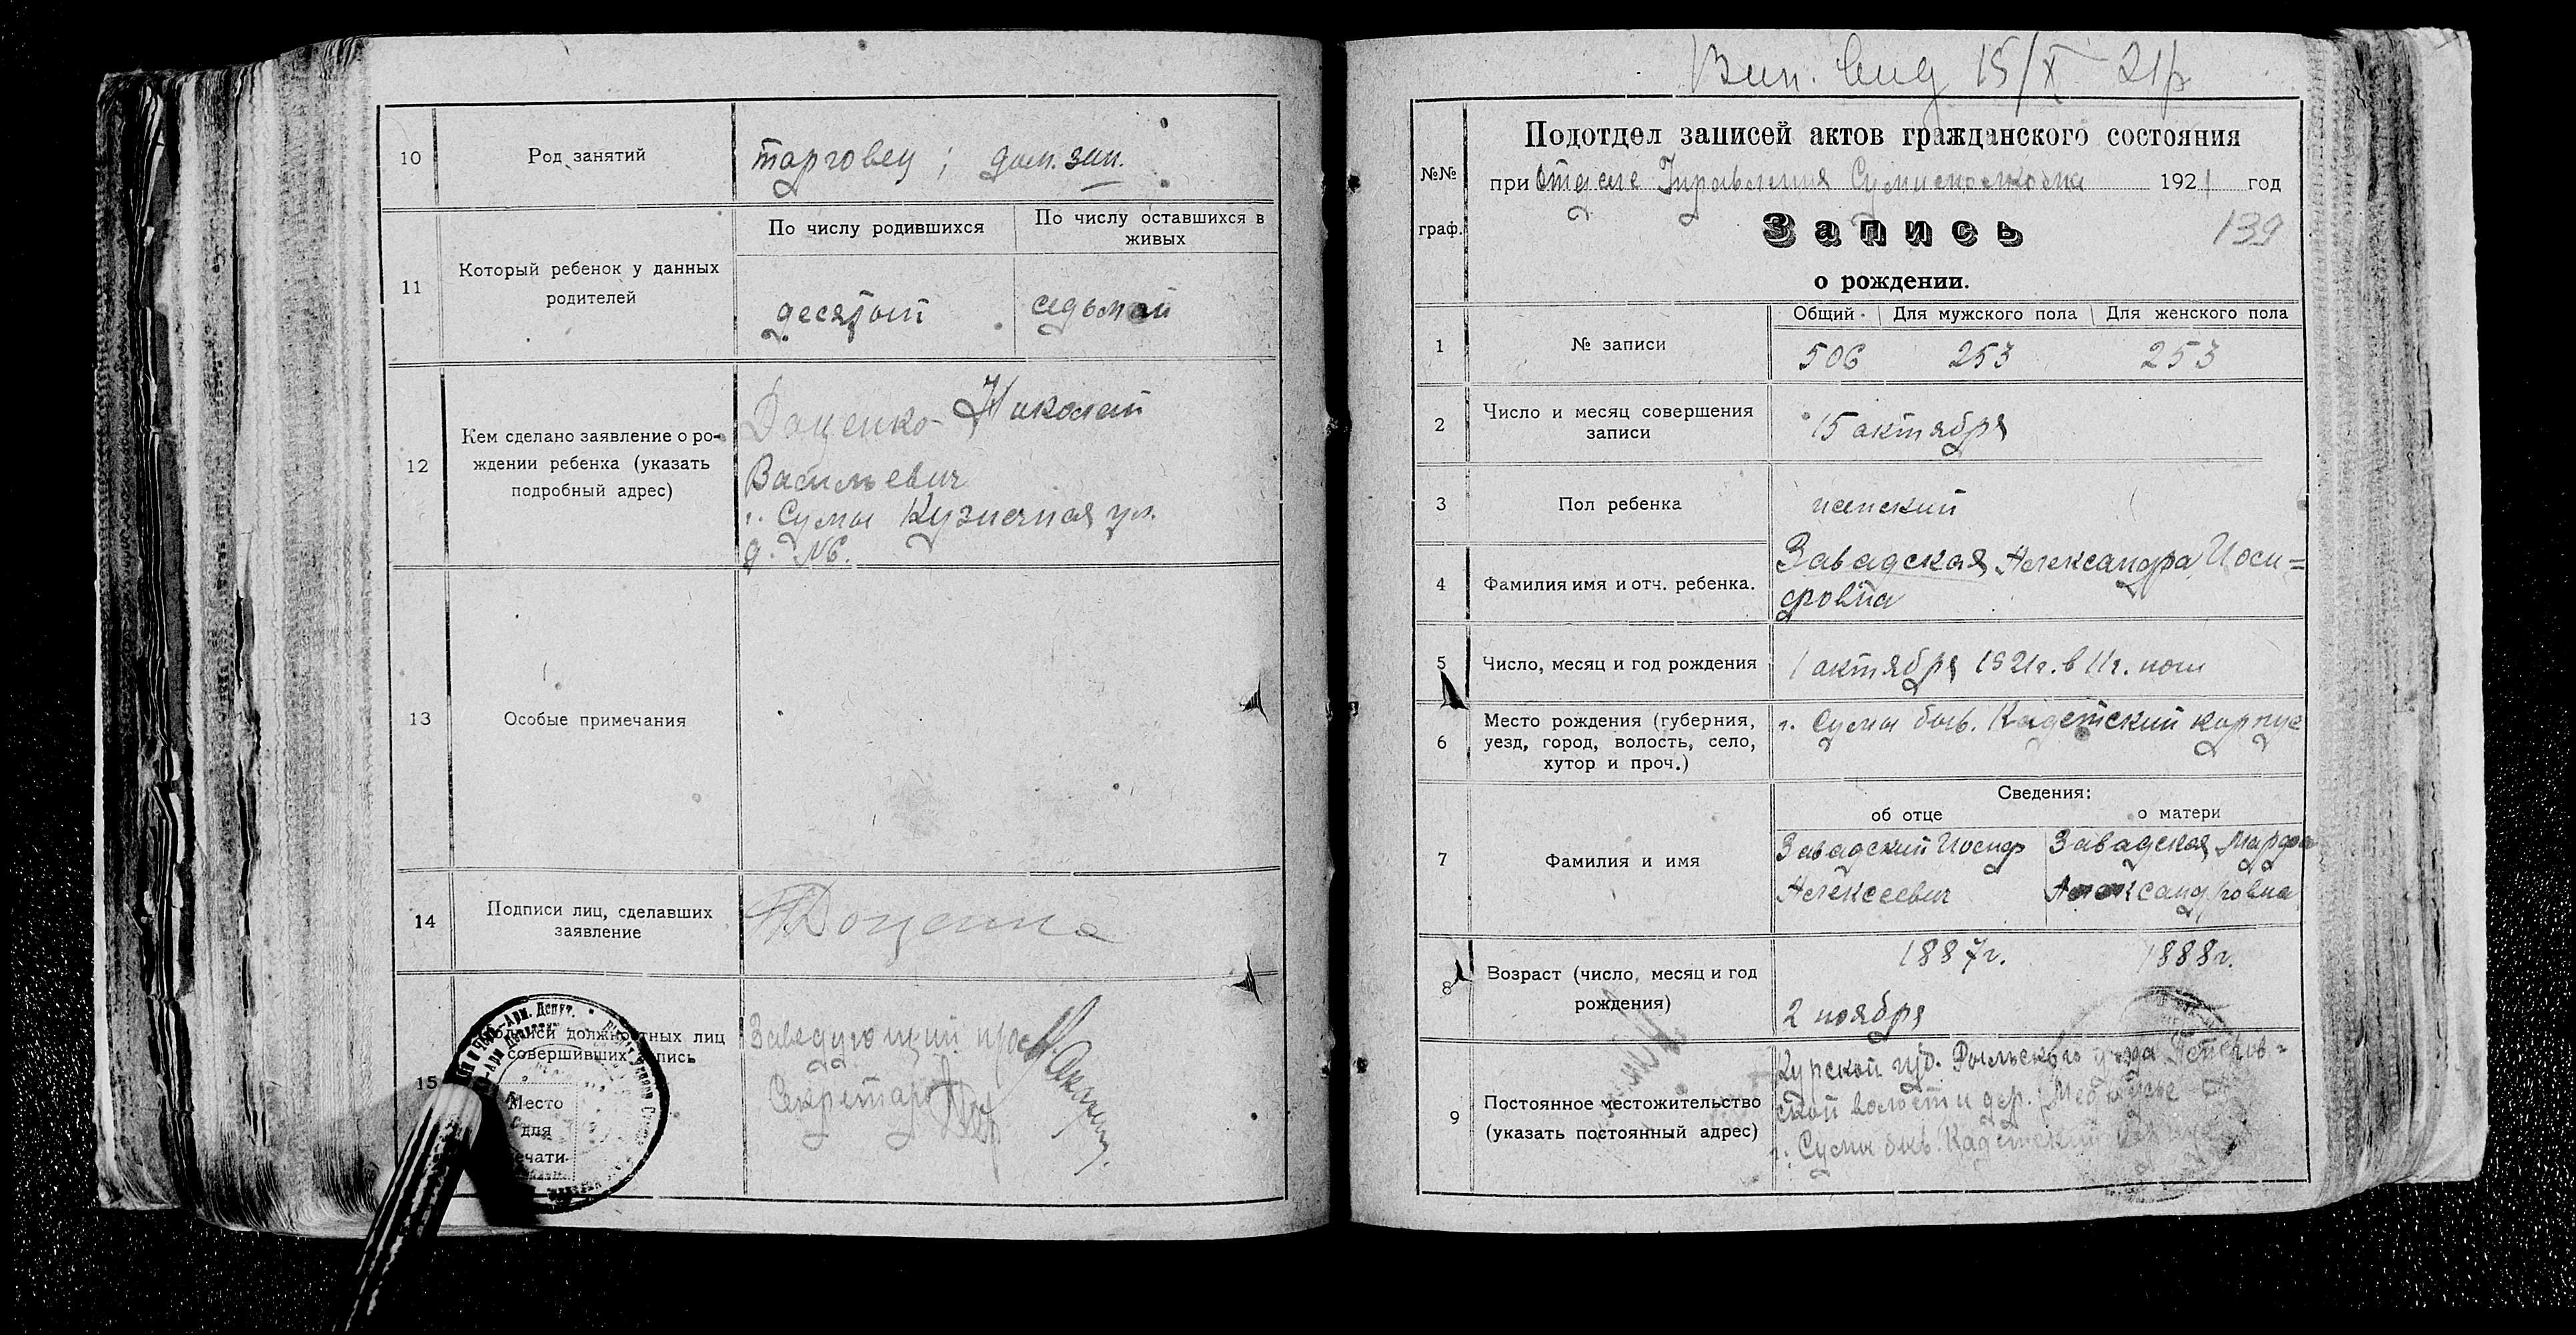 10
Род занятий
торговец; дом. зан.
11
Который ребенок у данных
родителей
По числу родившихся
По числу оставшихся в
живых
десятый
седьмой
12
Кем сделано заявление о ро-
ждении ребенка (указать
подробный адрес)
Доценко Николай
Васильевич
г. Сумы Кузнечная ул.
д. №6.
13
Особые примечания
14
Подписи лиц, сделавших
заявление
Доценко
15
Подписи должностных лиц
совершивших запись
Место
для
печати
Заведующий
Секретарь
15/X 21р
№№
граф.
Подотдел записей актов гражданского состояния
при Отделе Управления 1921 год
Запись
139
о рождении.
1
№ записи
Общий Для мужского пола Для женского пола
506 253 253
2
Число и месяц совершения
записи
15 октября
3
Пол ребенка
женский
4
Фамилия имя и отч. ребенка.
Завадская Александра Иоси=
фовна
5
Число, месяц и год рождения
1 октября 1921г. в 11ч. ночи
6
Место рождения (губерния,
уезд, город, волость, село,
хутор и проч.)
г. Сумы быв. Кадетский корпус
Сведения:
об отце
о матери
7
Фамилия и имя
Завадский Иосиф
Алексеевич
Завадская Марфа
Александровна
8
Возраст (число, месяц и год
рождения)
1887г.
2 ноября
1888г.
9
Постоянное местожительство
(указать постоянный адрес)
Курской губ. Рыльского уезда
ской волости дер.
г. Сумы быв. Кадетский корпус